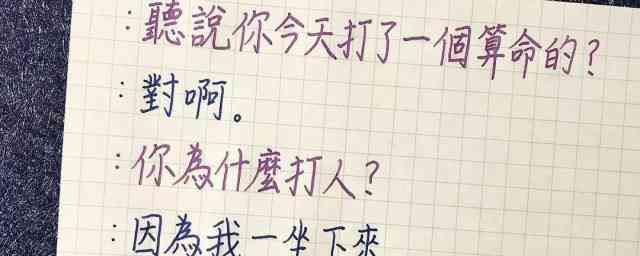 :聽說你今天打了一個算命的?
:對啊。
:你為什麼打人?
:因為我一坐下來